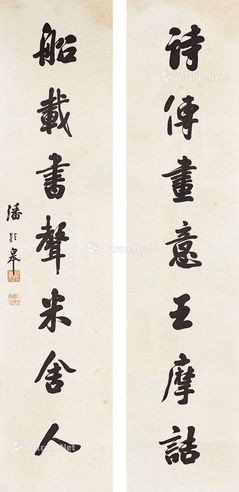 詩傳畫意王摩詰
船載書聲米舍人
潘齡皋